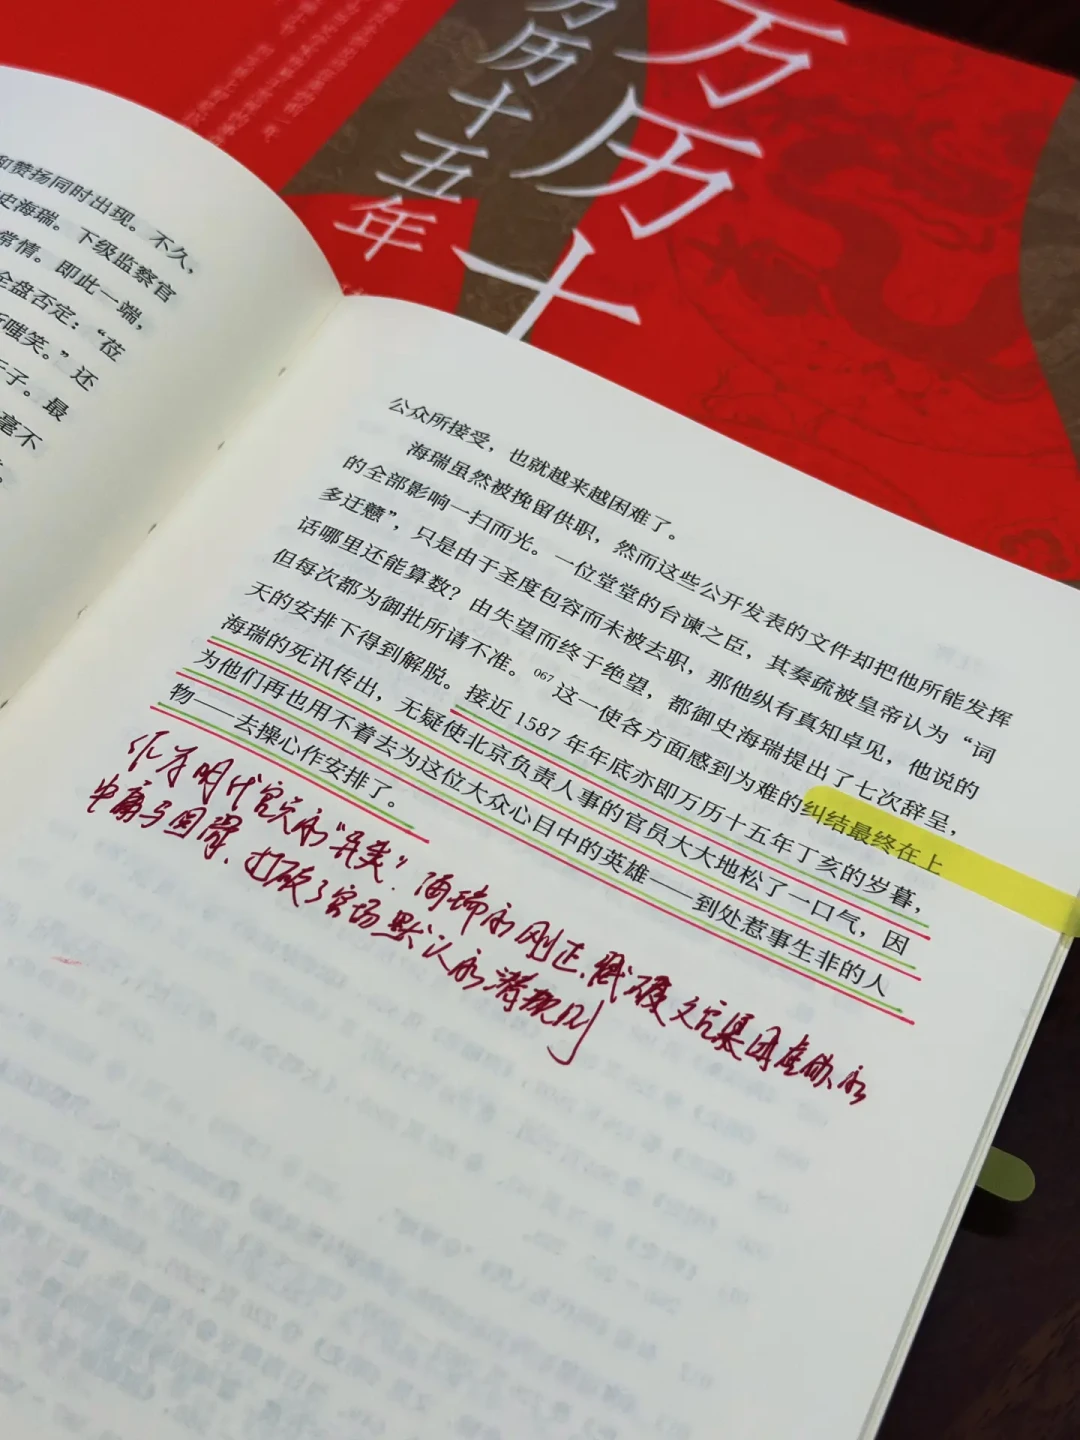 万历十
万历十五年
和赞扬同时出现。不久，
史海瑞。下级监察官
常情。即此一端，
全盘否定：“莅
所嗤笑。”还
于子。最
毫不
公众所接受，也就越来越困难了。
海瑞虽然被挽留供职，然而这些公开发表的文件却把他所能发挥
的全部影响一扫而光。一位堂堂的台谏之臣，其奏疏被皇帝认为“词
多迂戆”，只是由于圣度包容而未被去职，那他纵有真知卓见，他说的
话哪里还能算数？由失望而终于绝望，都御史海瑞提出了七次辞呈，
但每次都为御批所请不准。067 这一使各方面感到为难的纠结最终在上
天的安排下得到解脱。接近 1587 年年底亦即万历十五年丁亥的岁暮，
海瑞的死讯传出，无疑使北京负责人事的官员大大地松了一口气，因
为他们再也用不着去为这位大众心目中的英雄——到处惹事生非的人
物——去操心作安排了。
作为明代官完的“异类”，海瑞的刚正、戳破文官集团虚伪的
中庸与圆滑、打破了官场默认的潜规则